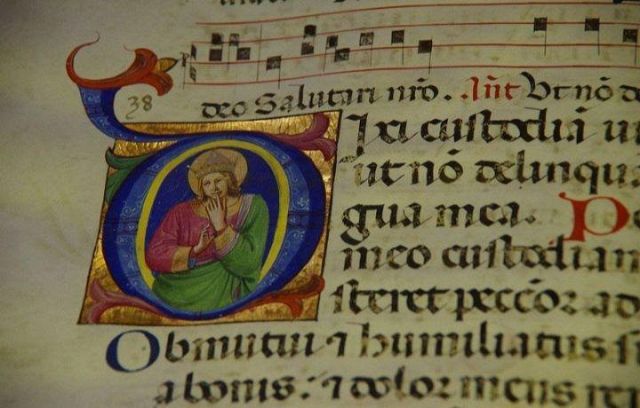 38
deo Salutari nr̄o. Ant̄ Ut nō de
Dixi custodiā vi
ut nō delinqua
gua mea. P
meo custodiam
steret peccōr ad
Obmutui ⁊ humiliatus s
a bonis: ⁊ dolor meus re